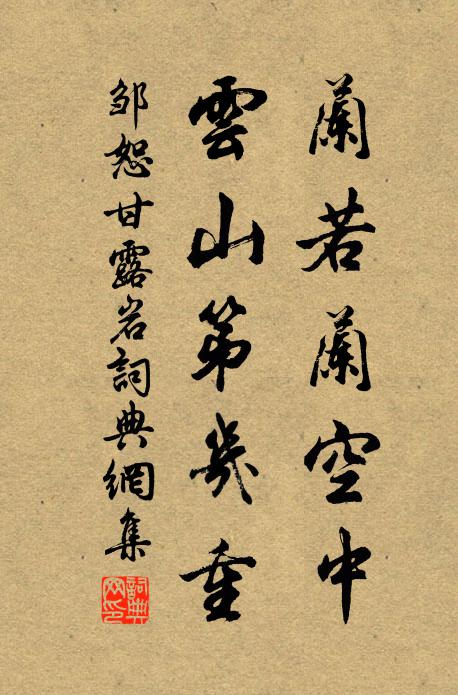 蘭若蘭空中
雲山第幾重
邹恕甘露岩詞典網集
詞典網印